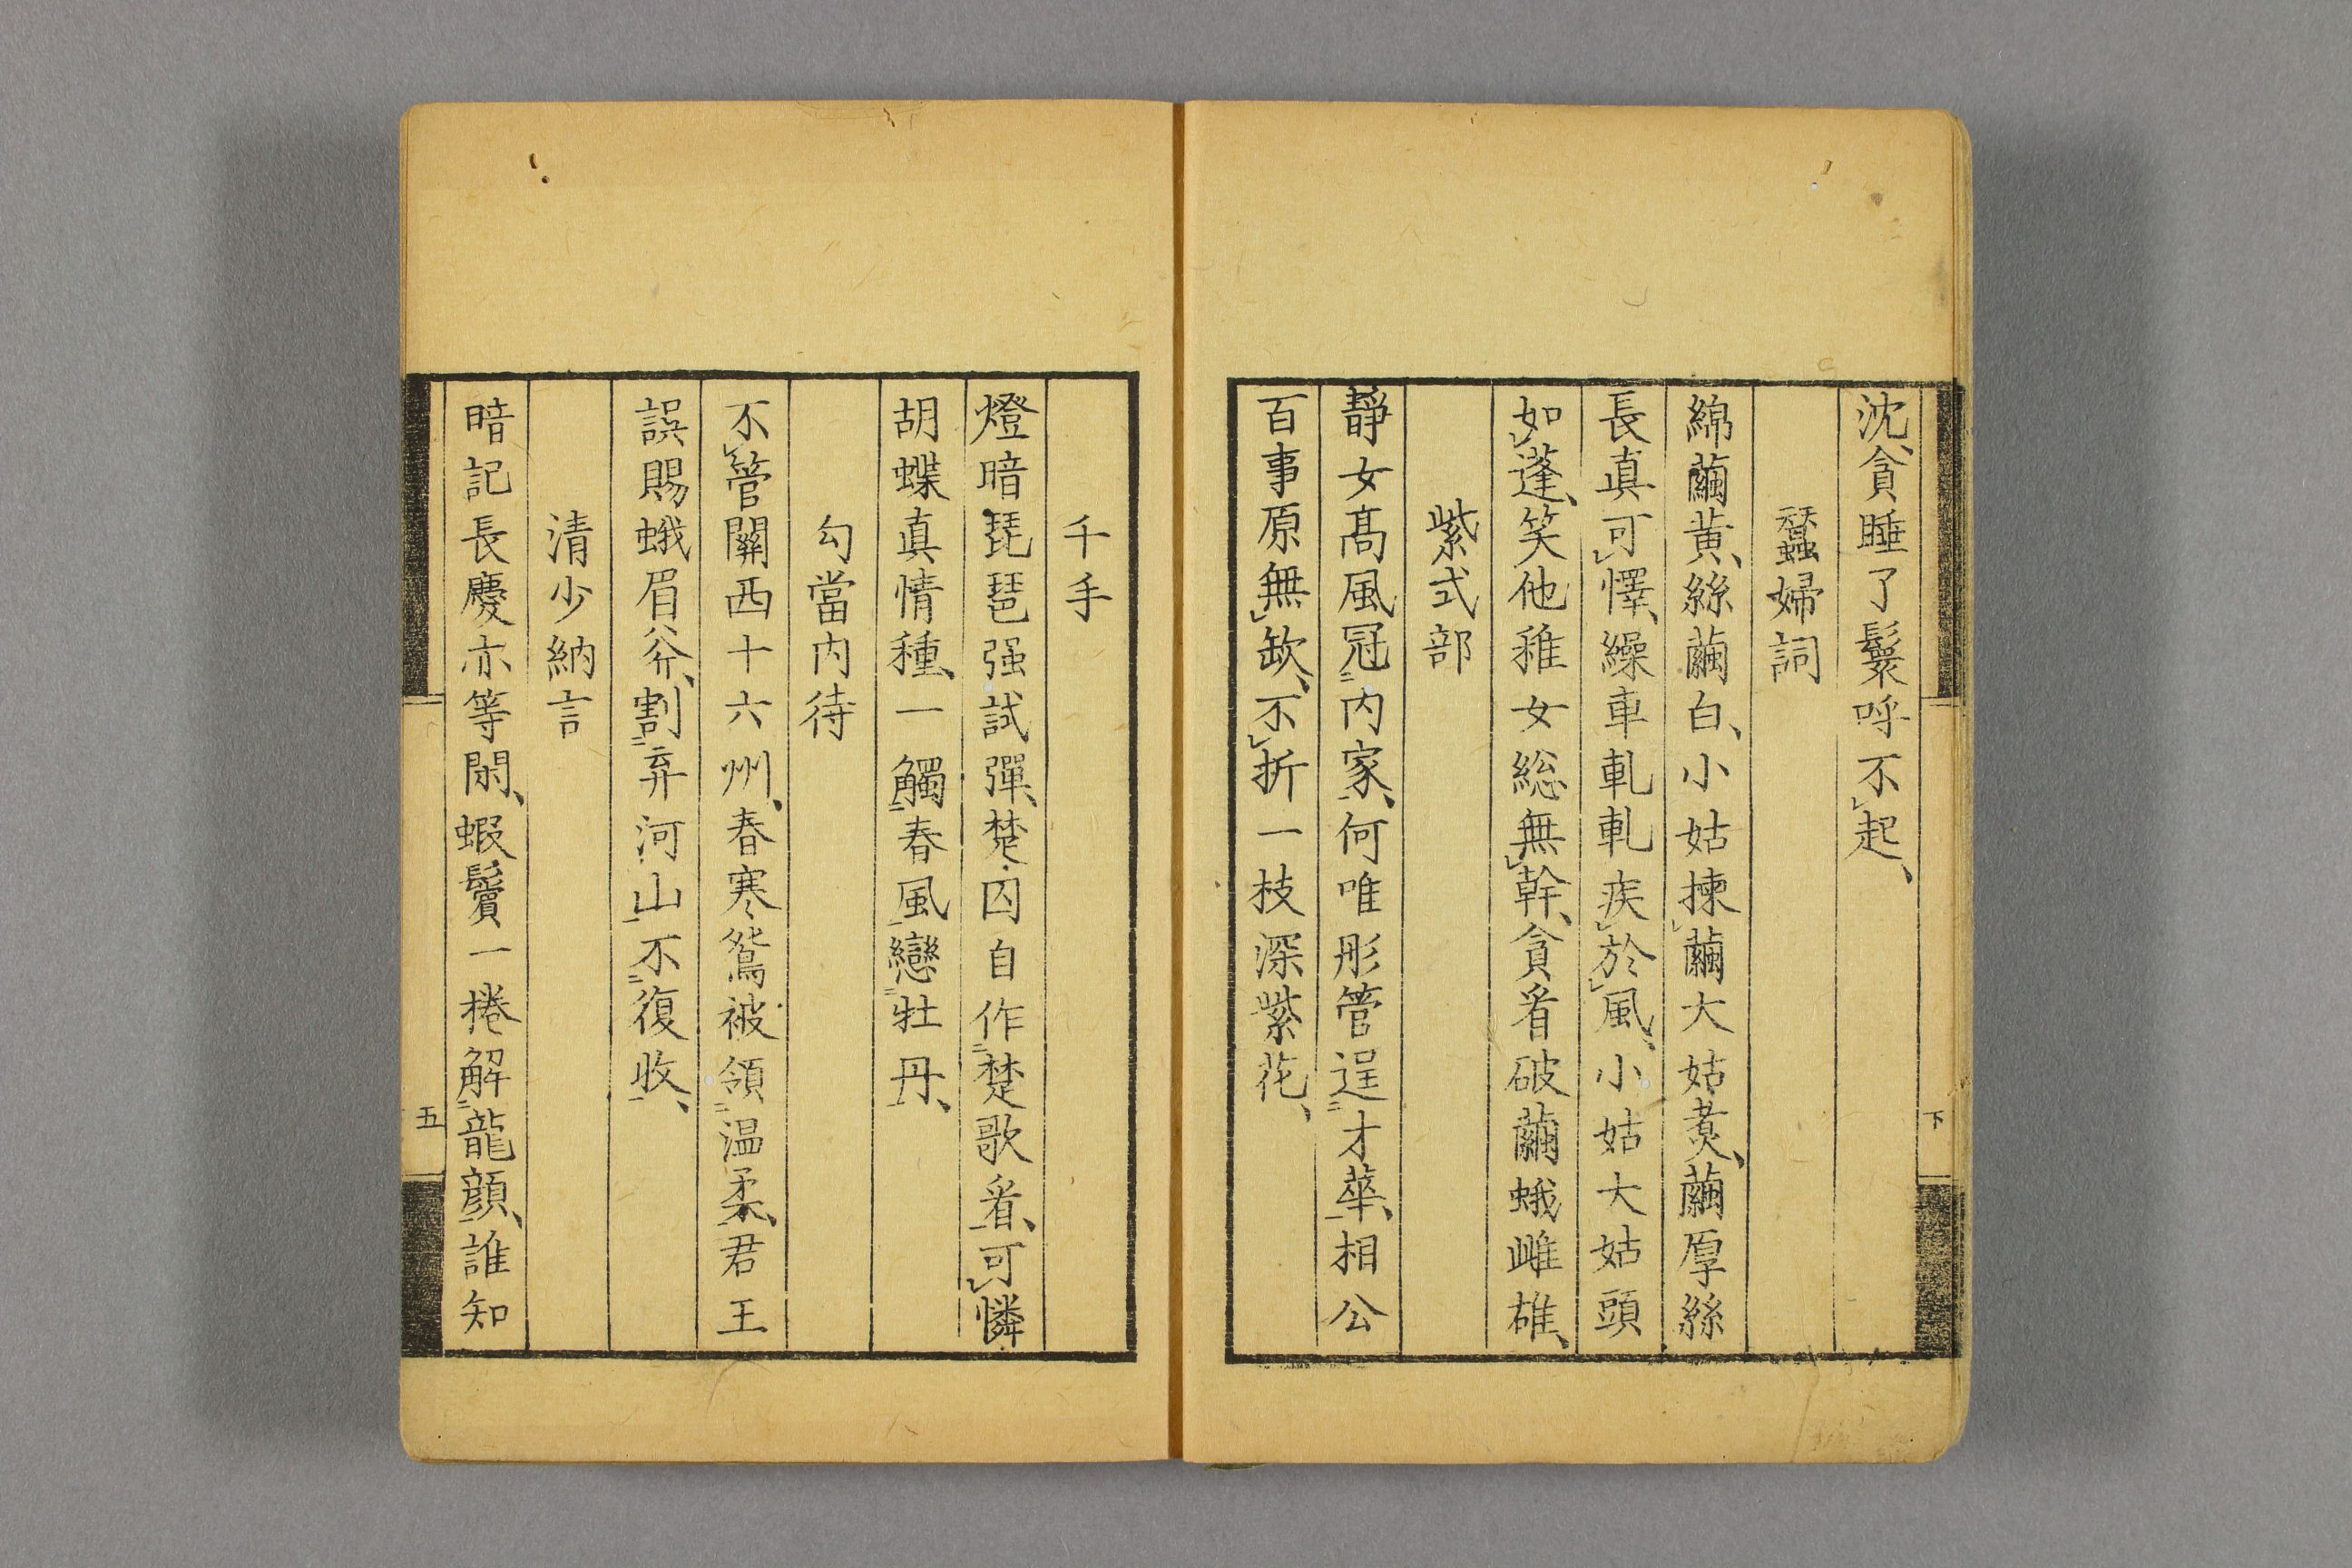 沈、貪睡了鬟呼不起、
蠶婦詞
綿繭黄、絲繭白、小姑揀繭大姑煑、繭厚絲
長真可懌、繰車軋軋疾於風、小姑大姑頭
如蓬、笑他稚女総無幹、貪看破繭蛾雌雄、
紫式部
靜女髙風冠内家、何唯彤管逞才華、相公
百事原無缺、不折一枝深紫花、
下
千手
燈暗琵琶强試彈、楚囚自作楚歌看、可憐
胡蝶真情種、一觸春風戀牡丹、
勾當内待
不管關西十六州、春寒鴛被領温柔、君王
誤賜蛾眉斧、割弃河山不復收、
清少納言
暗記長慶亦等閑、蝦鬚一捲解龍顔、誰知
五